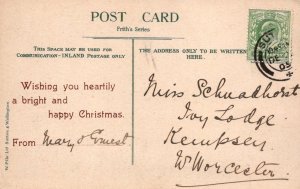 POST CARD
Frith's Series
THIS SPACE MAY BE USED FOR
COMMUNICATION—INLAND POSTAGE ONLY
THE ADDRESS ONLY TO BE WRITTEN
HERE.
Wishing you heartily
a bright and
happy Christmas.
From Mary & Ernest
Miss Schnadhorst
Ivy Lodge
Kempsey
Nr Worcester
DE
03